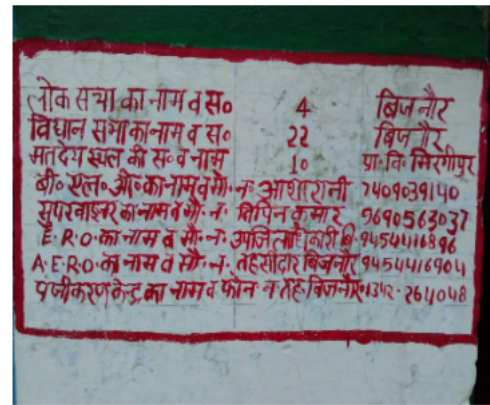 लोक सभा का नाम व स० 4 बिजनौर
विधान सभा का नाम व स० 22 बिजनौर
मतदेय स्थल की स० व नाम 10 प्रा. वि. मिरगीपुर
बी० एल० ओ० का नाम व मो. न. आशारानी 7409039140
सुपरवाइजर का नाम व मो. न. विपिन कुमार 9690563037
E.R.O. का नाम व मो. न. उपजिलाधिकारी बि. 9454416896
A.E.R.O. का नाम व मो. न. तहसीदार बिजनौर 9454416904
पंजीकरण केन्द्र का नाम व फोन न. तह. बिजनौर. 1342-264048